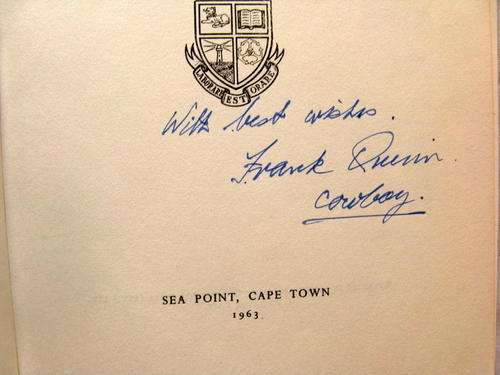 LABORARE EST ORARE
With best wishes.
Frank Quinn.
Cowboy.
SEA POINT, CAPE TOWN
1963